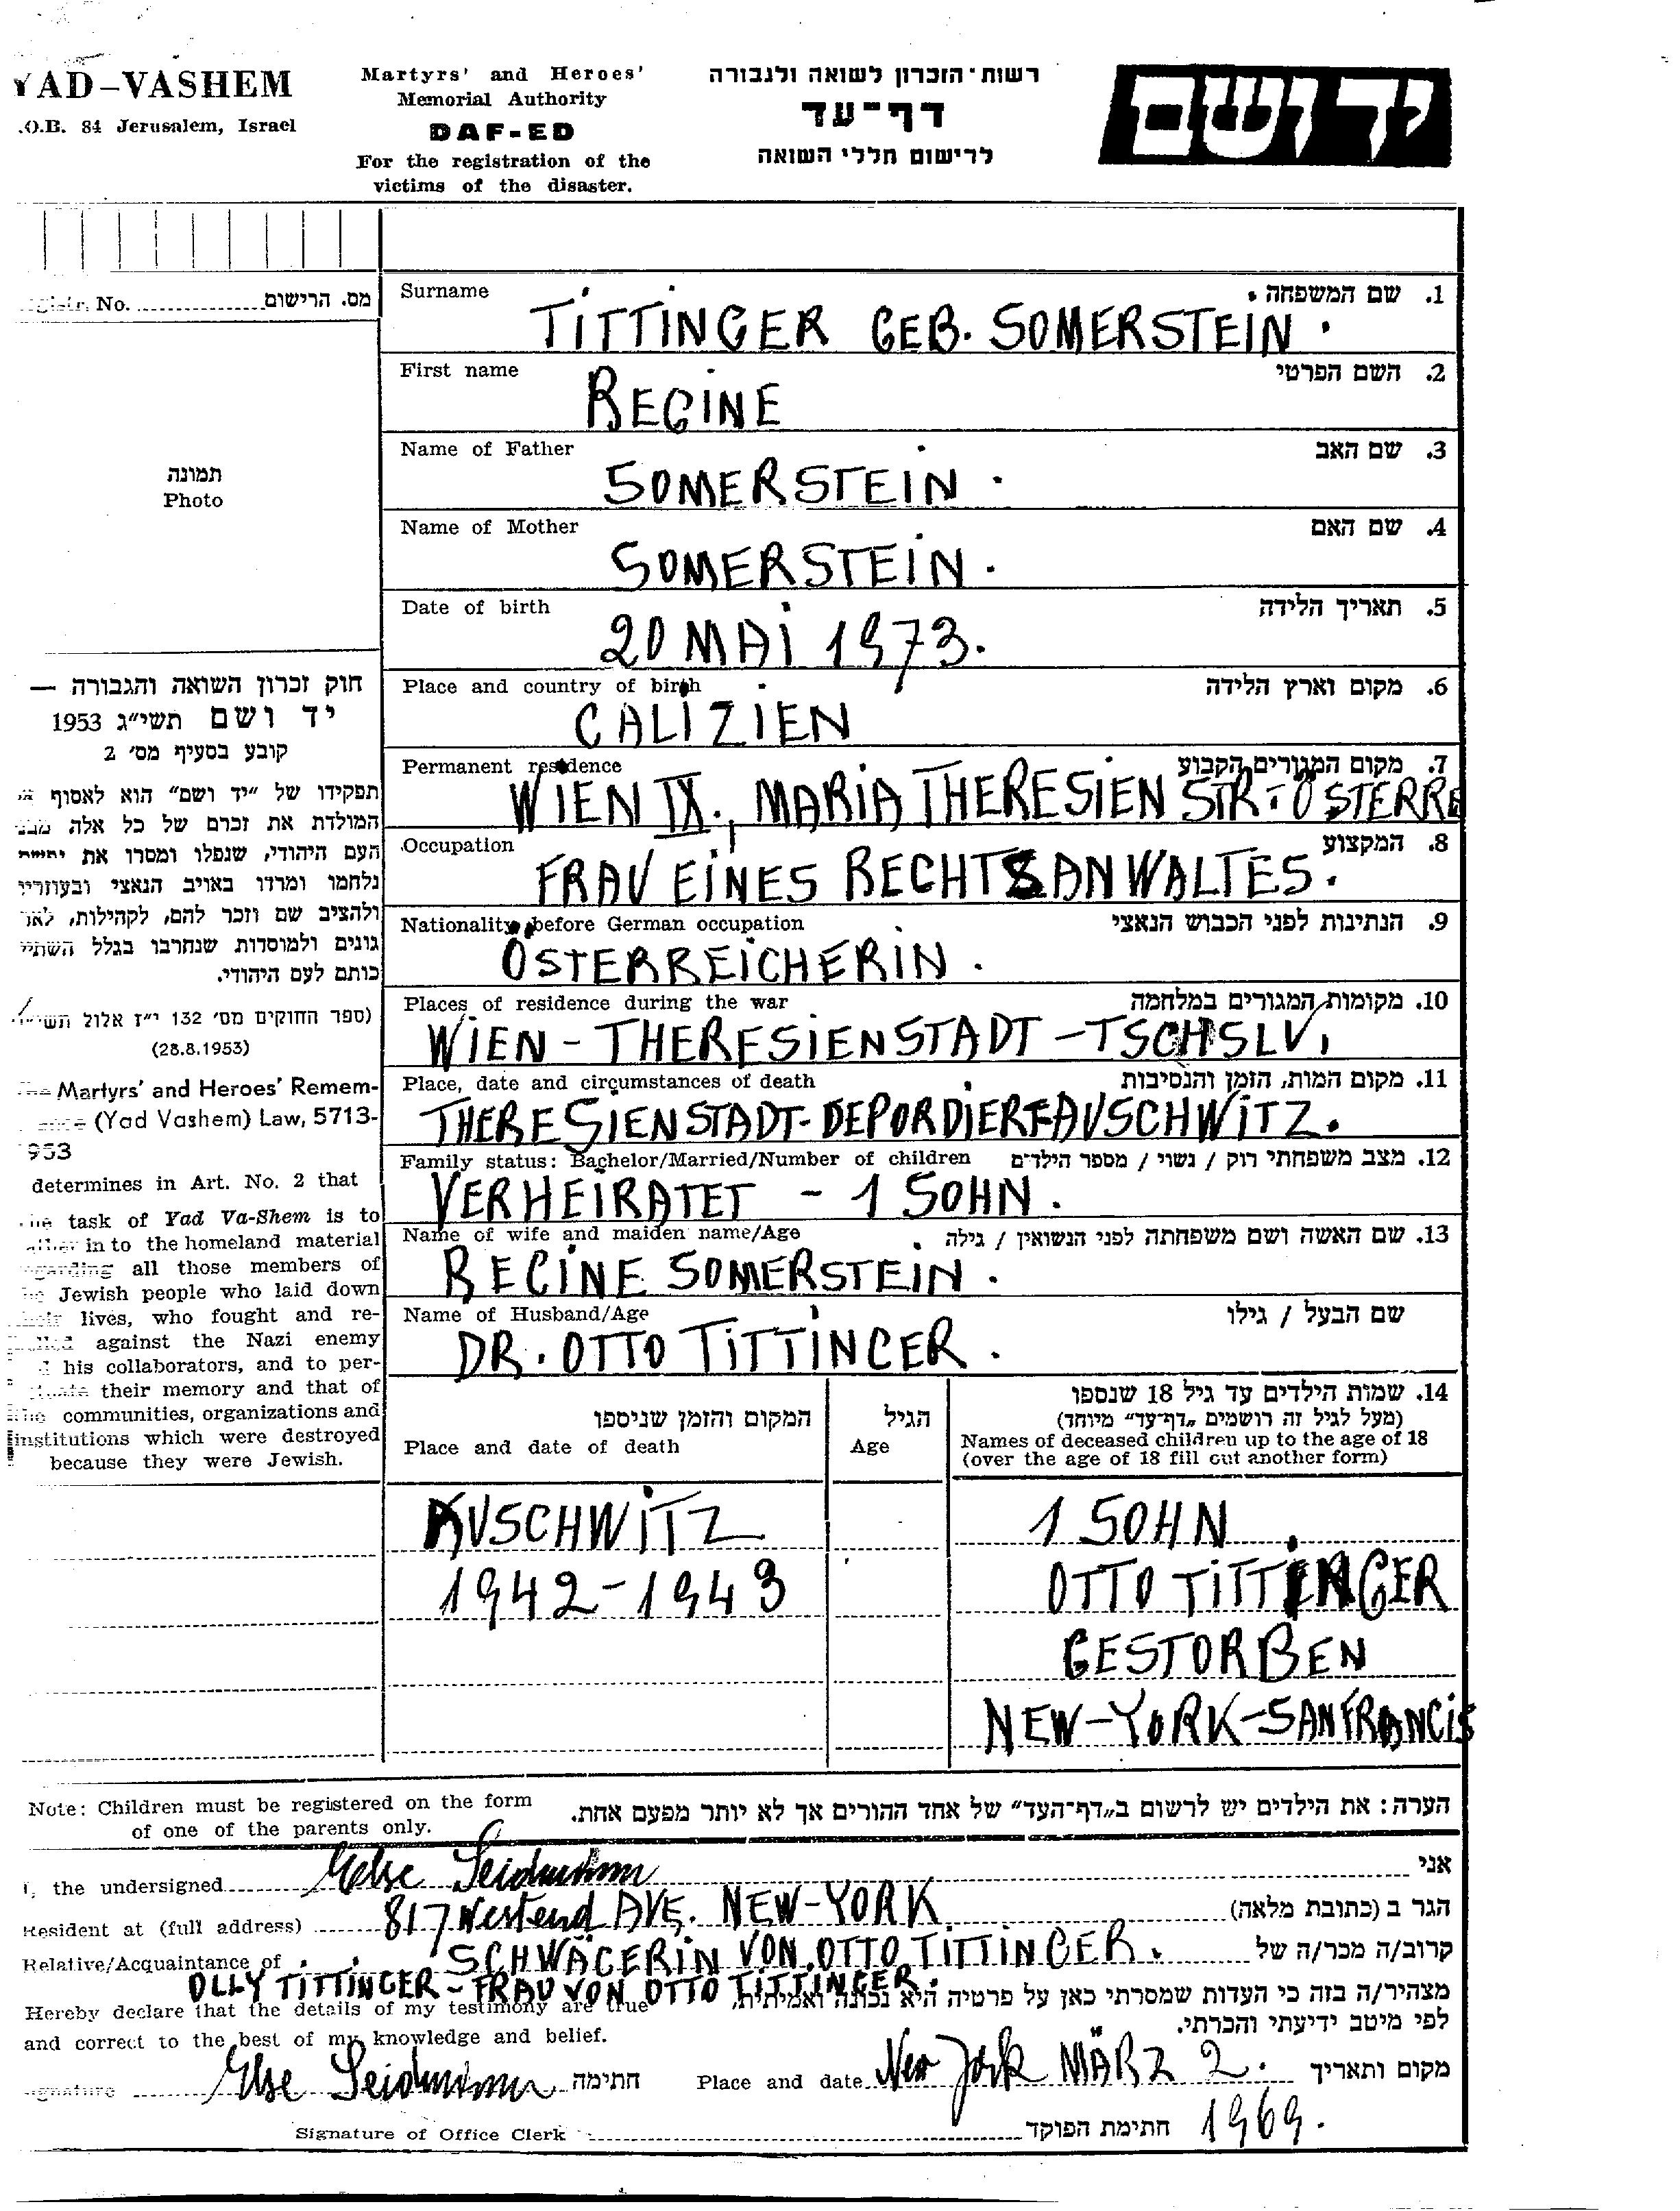 YAD-VASHEM
.O.B. 84 Jerusalem, Israel
Martyrs' and Heroes'
Memorial Authority
DAF-ED
For the registration of the
victims of the disaster.
רשות הזכרון לשואה ולגבורה
דף-עד
לרישום חללי השואה
יד ושם
No. מס. הרישום
תמונה
Photo
חוק זכרון השואה והגבורה —
יד ושם תשי"ג 1953
קובע בסעיף מס' 2
תפקידו של "יד ושם" הוא לאסוף
המולדת את זכרם של כל אלה
העם היהודי, שנפלו ומסרו את
נלחמו ומרדו באויב הנאצי ובעוזריו
ולהציב שם וזכר להם, לקהילות,
גונים ולמוסדות שנחרבו בגלל השתיי
כותם לעם היהודי.
(ספר החוקים מס' 132 י"ז אלול
(28.8.1953)
Martyrs' and Heroes' Remem-
(Yad Vashem) Law, 5713-
953
determines in Art. No. 2 that
task of Yad Va-Shem is to
in to the homeland material
all those members of
Jewish people who laid down
lives, who fought and re-
against the Nazi enemy
his collaborators, and to per-
their memory and that of
communities, organizations and
institutions which were destroyed
because they were Jewish.
Surname 1. שם המשפחה
TITTINGER GEB. SOMERSTEIN.
First name 2. השם הפרטי
REGINE
Name of Father 3. שם האב
SOMERSTEIN.
Name of Mother 4. שם האם
SOMERSTEIN.
Date of birth 5. תאריך הלידה
20 MAI 1973.
Place and country of birth 6. מקום וארץ הלידה
GALIZIEN
Permanent residence 7. מקום המגורים הקבוע
WIEN IX., MARIA THERESIEN STR. ÖSTERRE
Occupation 8. המקצוע
FRAU EINES RECHTSANWALTES.
Nationality before German occupation 9. הנתינות לפני הכבוש הנאצי
ÖSTERREICHERIN.
Places of residence during the war 10. מקומות המגורים במלחמה
WIEN - THERESIENSTADT - TSCHSLV,
Place, date and circumstances of death 11. מקום המות, הזמן והנסיבות
THERESIENSTADT-DEPORDIERT AUSCHWITZ.
Family status: Bachelor/Married/Number of children 12. מצב משפחתי רוק / נשוי / מספר הילדים
VERHEIRATET - 1 SOHN.
Name of wife and maiden name/Age 13. שם האשה ושם משפחתה לפני הנשואין / גילה
REGINE SOMERSTEIN.
Name of Husband/Age שם הבעל / גילו
DR. OTTO TITTINGER.
14. שמות הילדים עד גיל 18 שנספו
(מעל לגיל זה רושמים "דף-עד" מיוחד)
Names of deceased children up to the age of 18
(over the age of 18 fill out another form)
הגיל
Age
המקום והזמן שניספו
Place and date of death
AUSCHWITZ 1 SOHN
1942-1943 OTTO TITTINGER
GESTORBEN
NEW-YORK-SANFRANCIS
Note: Children must be registered on the form
of one of the parents only.
הערה: את הילדים יש לרשום ב"דף-העד" של אחד ההורים אך לא יותר מפעם אחת.
I, the undersigned Else Seidmann אני
Resident at (full address) 817 Westend AVE. NEW-YORK הגר ב (כתובת מלאה)
Relative/Acquaintance of SCHWÄGERIN VON OTTO TITTINGER. קרוב/ה מכר/ה של
OLLY TITTINGER - FRAU VON OTTO TITTINGER.
Hereby declare that the details of my testimony are true
and correct to the best of my knowledge and belief.
מצהיר/ה בזה כי העדות שמסרתי כאן על פרטיה היא נכונה ואמיתית,
לפי מיטב ידיעתי והכרתי.
Signature Else Seidmann חתימה Place and date New York MÄRZ 2. מקום ותאריך
1969.
Signature of Office Clerk חתימת הפוקד